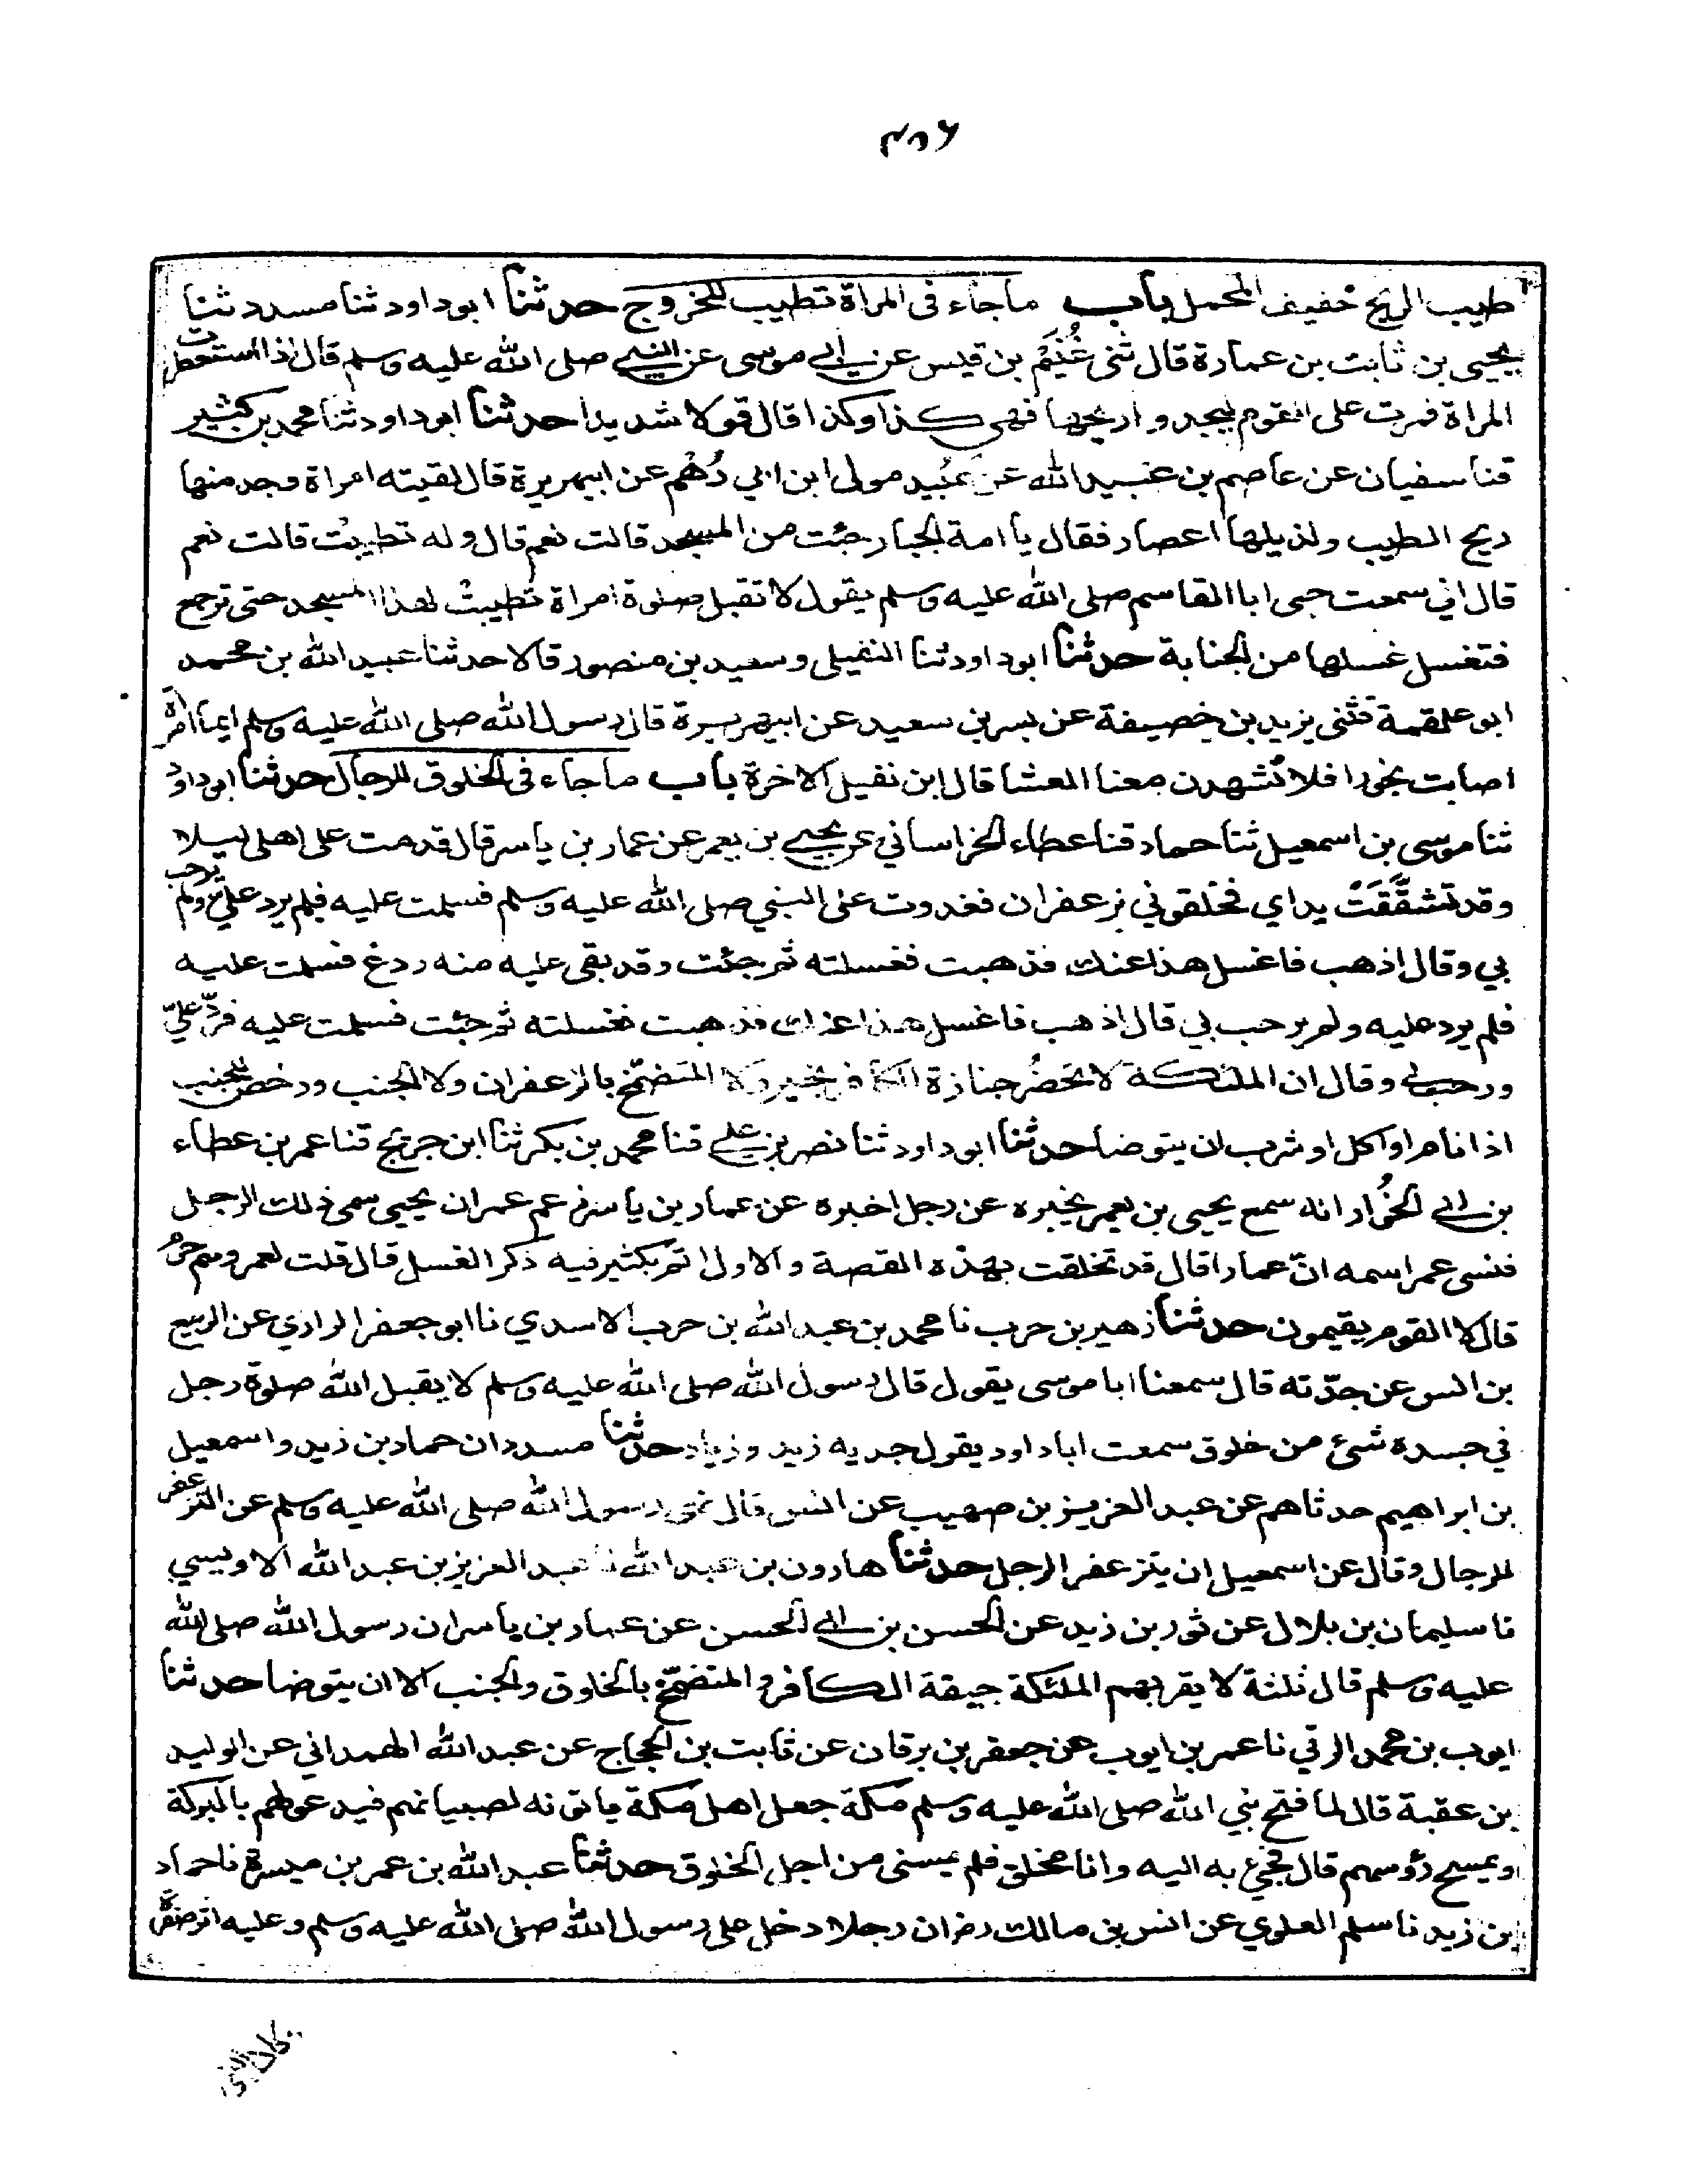 ٤٥٦
طيب الريح خفيف المحمل باب ما جاء فى المراة تطيب للخروج حدثنا ابوداود ثنا مسدد ثنا
يحيى بن ثابت بن عمارة قال ثنى غُنَيْم بن قيس عن ابي موسى عن النبي صلى الله عليه وسلم قال اذا استعطرت
المراة فمرت على القوم ليجدوا ريحها فهى كذا وكذا قال قولا شديدا حدثنا ابوداود ثنا محمد بن كثير
قنا سفيان عن عاصم بن عبيد الله عن عُبَيد مولى ابن ابي رُهْم عن ابيهريرة قال لقيته امراة وجد منها
ريح الطيب ولذيلها اعصار فقال يا امة الجبار جئت من المسجد قالت نعم قال وله تطيبت قالت نعم
قال اني سمعت حبى ابا القاسم صلى الله عليه وسلم يقول لا تقبل صلوة امراة تطيبت لهذا المسجد حتى ترجع
فتغسل غسلها من الجنابة حدثنا ابوداود ثنا النفيلى وسعيد بن منصور قالا حدثنا عبيد الله بن محمد
ابو علقمة قثنى يزيد بن خصيفة عن بسر بن سعيد عن ابيهريرة قال رسول الله صلى الله عليه وسلم ايما امراة
اصابت بخورا فلا تشهدن معنا العشا قال ابن نفيل الاخرة باب ما جاء فى الخلوق للرجال حدثنا ابوداود
ثنا موسى بن اسمعيل ثنا حماد قنا عطاء الخراساني عن يحيى بن يعمر عن عمار بن ياسر قال قدمت على اهلى ليلا
وقد تشقَّقَت يداي فخلقوني بزعفران فغدوت على النبي صلى الله عليه وسلم فسلمت عليه فلم يرد علي ولم يرحب
بي وقال اذهب فاغسل هذا عنك فذهبت فغسلته ثم جئت وقد بقى عليه منه ردغ فسلمت عليه
فلم يرد عليه ولم يرحب بي قال اذهب فاغسل هذا عنك فذهبت فغسلته ثم جئت فسلمت عليه فردّ عليّ
ورحب بي وقال ان الملئكة لا تحضُر جنازة الكافر بخير ولا المتضمّخ بالزعفران ولا الجنب ورخص للجنب
اذا نام او اكل او شرب ان يتوضا حدثنا ابوداود ثنا نصر بن علي قنا محمد بن بكر ثنا ابن جريج قنا عمر بن عطاء
بن ابي الخُوار انه سمع يحيى بن يعمر يخبره عن رجل اخبره عن عمار بن ياسر زعم عمر ان يحيى سمى ذلك الرجل
فنسى عمر اسمه انّ عمارا قال قد تخلقت بهذه القصة والاول اتم بكثير فيه ذكر الغسل قال قلت لعمر وهم حُرُم
قال لا القوم يقيمون حدثنا زهير بن حرب نا محمد بن عبدالله بن حرب الاسدي نا ابو جعفر الرازي عن الربيع
بن انس عن جدّته قال سمعنا ابا موسى يقول قال رسول الله صلى الله عليه وسلم لا يقبل الله صلوة رجل
في جسده شئ من خلوق سمعت اباداود يقول جديه زيد وزياد حدثنا مسدد ان حماد بن زيد واسمعيل
بن ابراهيم حدثاهم عن عبد العزيز بن صهيب عن انس قال نهى رسول الله صلى الله عليه وسلم عن التزعفر
للرجال وقال عن اسمعيل ان يتزعفر الرجل حدثنا هارون بن عبد الله نا عبد العزيز بن عبد الله الاويسي
نا سليمان بن بلال عن ثور بن زيد عن الحسن بن ابي الحسن عن عمار بن ياسر ان رسول الله صلى الله
عليه وسلم قال ثلثة لا يقربهم الملئكة جيفة الكافر والمتضمّخ بالخلوق والجنب الا ان يتوضا حدثنا
ايوب بن محمد الرقي نا عمر بن ايوب عن جعفر بن برقان عن ثابت بن الحجاج عن عبد الله الهمداني عن الوليد
بن عقبة قال لما فتح نبي الله صلى الله عليه وسلم مكة جعل اهل مكة ياتونه لصبيانهم فيدعو لهم بالبركة
ويمسح رؤسهم قال فجئ به اليه وانا مخلق فلم يمسنى من اجل الخلوق حدثنا عبد الله بن عمر بن ميسرة نا حماد
بن زيد نا سلم العلوي عن انس بن مالك رض ان رجلا دخل على رسول الله صلى الله عليه وسلم وعليه اثر صفرة